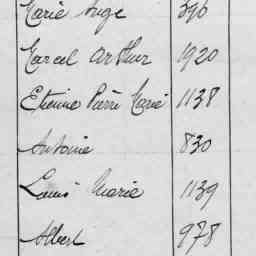 Marie Ange 396
Marcel Arthur 1920
Etienne Pierre Marie 1138
Antoine 830
Louis Marie 1139
Albert 978